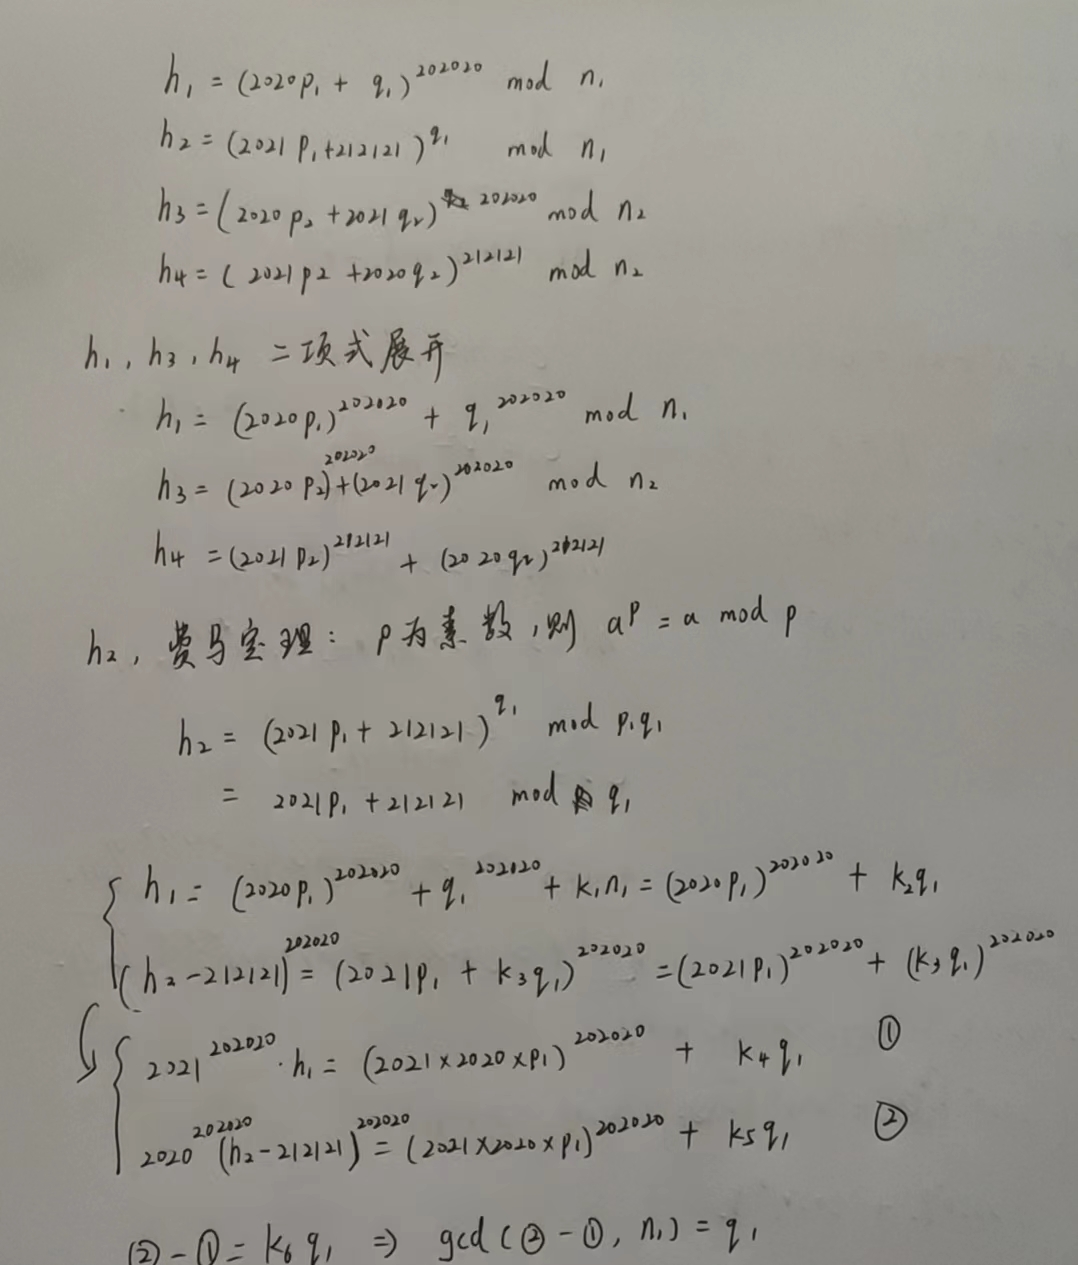 h₁ = (2020p₁ + q₁)^202020 mod n₁
h₂ = (2021p₁+212121)^q₁ mod n₁
h₃ = (2020p₂ + 2021q₂)^202020 mod n₂
h₄ = (2021p₂ + 2020q₂)^212121 mod n₂
h₁, h₃, h₄ 二项式展开
h₁ = (2020p₁)^202020 + q₁^202020 mod n₁
h₃ = (2020p₂)^202020 + (2021q₂)^202020 mod n₂
h₄ = (2021p₂)^212121 + (2020q₂)^212121
h₂, 费马定理: p为素数,则 a^p = a mod p
h₂ = (2021p₁ + 212121)^q₁ mod p₁q₁
= 2021p₁ + 212121 mod q₁
h₁ = (2020p₁)^202020 + q₁^202020 + k₁n₁ = (2020p₁)^202020 + k₂q₁
(h₂-212121)^202020 = (2021p₁ + k₃q₁)^202020 = (2021p₁)^202020 + (k₃q₁)^202020
2021^202020 · h₁ = (2021×2020×p₁)^202020 + k₄q₁ ①
2020^202020 (h₂-212121)^202020 = (2021×2020×p₁)^202020 + k₅q₁ ②
②-① = k₆q₁ ⇒ gcd(②-①, n₁) = q₁